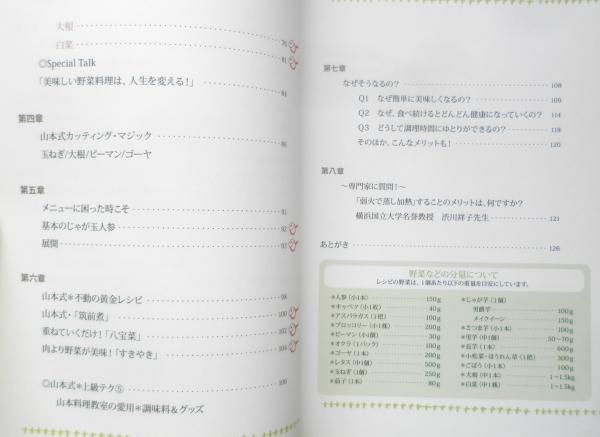 大根 76
白菜 81
◎Special Talk
「美味しい野菜料理は、人生を変える！」 84
第四章
山本式カッティング・マジック 86
玉ねぎ/大根/ピーマン/ゴーヤ
第五章
メニューに困った時こそ 91
基本のじゃが玉人参 92
展開 93
第六章
山本式＊不動の黄金レシピ 98
山本式・「筑前煮」 100
重ねていくだけ！「八宝菜」 102
肉より野菜が美味！「すきやき」 104
◎山本式＊上級テク⑤ 106
山本料理教室の愛用＊調味料＆グッズ
第七章
なぜそうなるの？ 108
Q1 なぜ簡単に美味しくなるの？ 109
Q2 なぜ、食べ続けるとどんどん健康になっていくの？ 114
Q3 どうして調理時間にゆとりができるの？ 118
そのほか、こんなメリットも！ 120
第八章
～専門家に質問！～
「弱火で蒸し加熱」することのメリットは、何ですか？
横浜国立大学名誉教授 渋川祥子先生 121
あとがき 126
野菜などの分量について
レシピの野菜は、1個あたり以下の重量を目安にしています。
＊人参（小1本） 150g
＊キャベツ（小1枚） 40g
＊アスパラガス（1把） 100g
＊ブロッコリー（小1株） 200g
＊ピーマン（小1個） 30g
＊オクラ（1パック） 100g
＊ゴーヤ（1本） 200g
＊レタス（中1個） 500g
＊玉ねぎ（1個） 250g
＊茄子（1本） 80g
＊じゃが芋（1個）
男爵芋 100g
メイクイーン 150g
＊さつま芋（小1本） 100g
＊里芋（中1個） 50～70g
＊長芋（1本） 600g
＊小松菜・ほうれん草（1把） 300g
＊ごぼう（小1本） 100g
＊大根（中1本） 1～1.5kg
＊白菜（中1株） 1～1.5kg